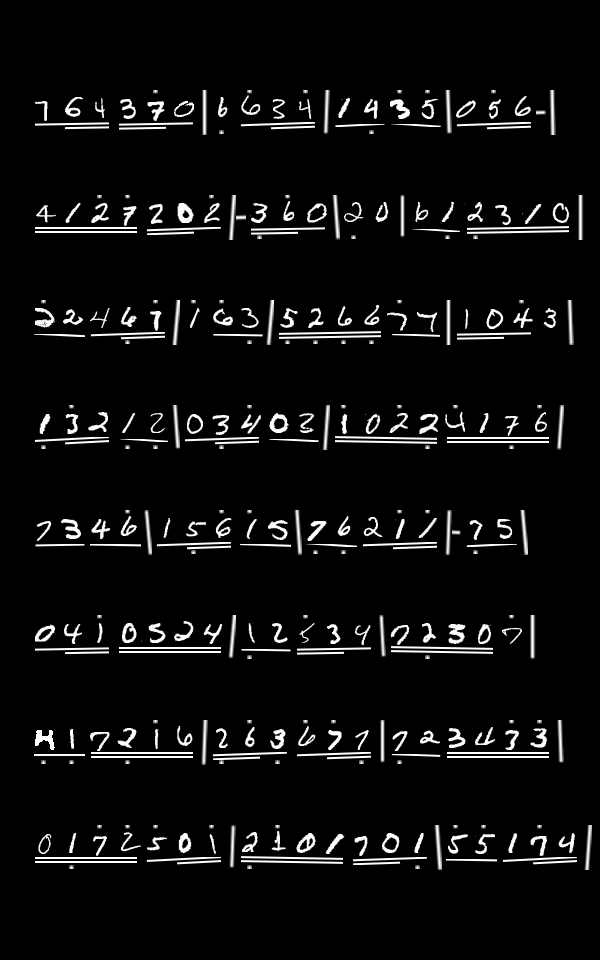 764370|6634|1435|056-|
4127202|-360|20|612310|
22467|163|526677|1043|
13212|03403|10224176|
7346|15615|76211|-75|
0410524|12534|72307|
417216|263677|723433|
0172501|2101701|55174|